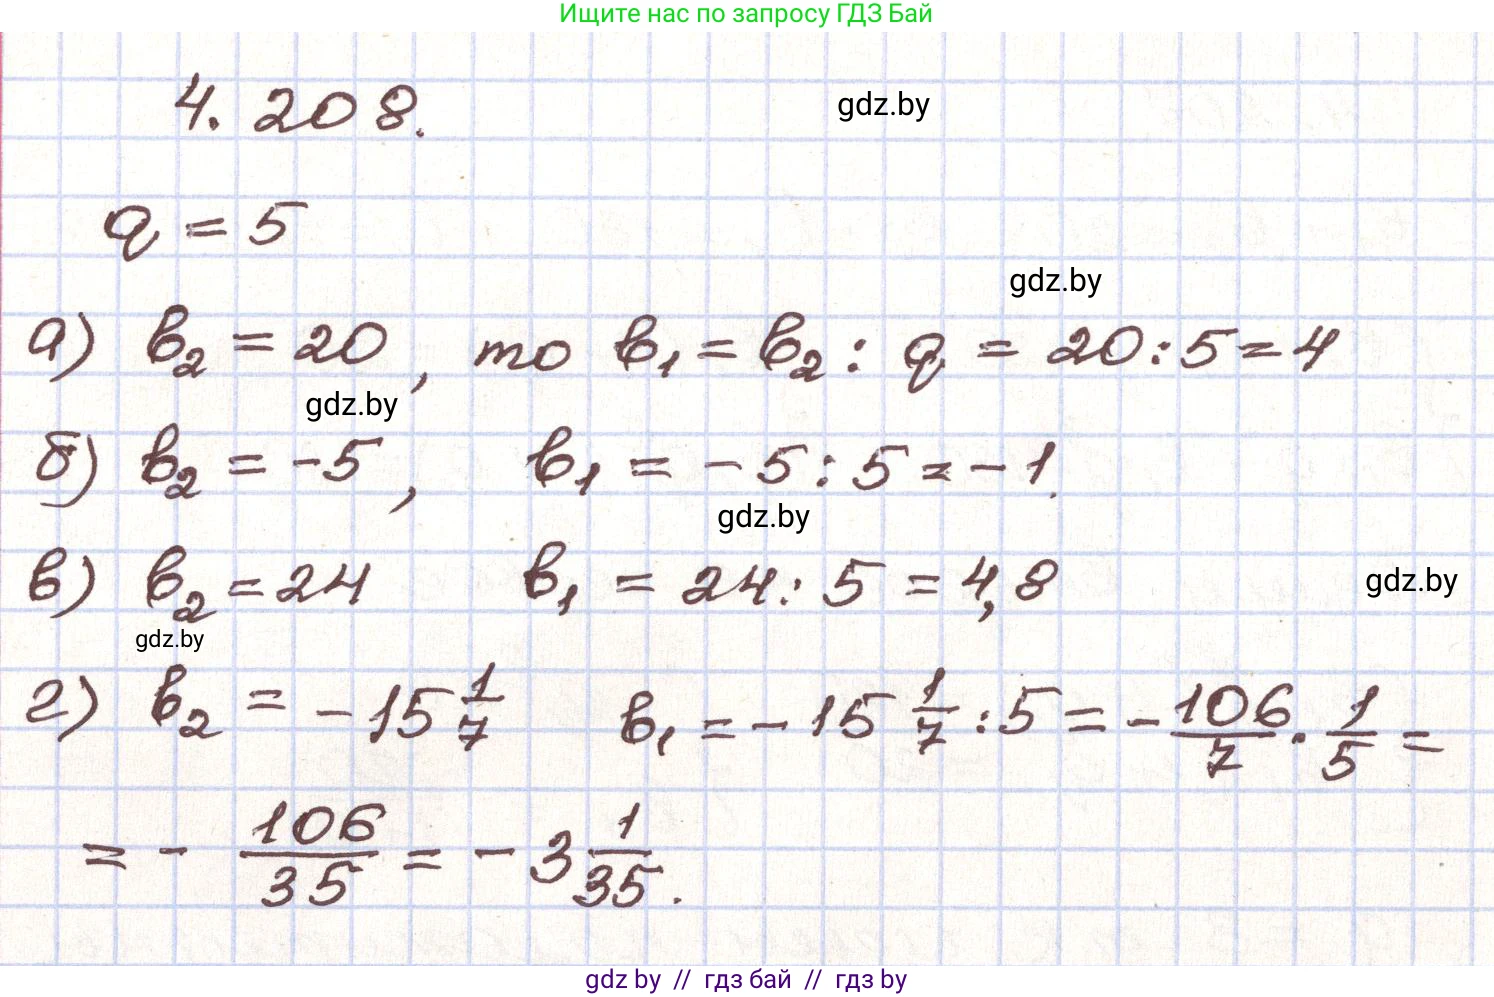 Ищите нас по запросу ГДЗ Бай
4.208.
gdz.by
q = 5
gdz.by
а) b₂ = 20, то b₁ = b₂ : q = 20 : 5 = 4
gdz.by
б) b₂ = -5, b₁ = -5 : 5 = -1.
gdz.by
в) b₂ = 24 b₁ = 24 : 5 = 4,8
gdz.by
gdz.by
г) b₂ = -15 1/7 b₁ = -15 1/7 : 5 = -106/7 · 1/5 =
= -106/35 = -3 1/35.
gdz.by // гдз бай // гдз by